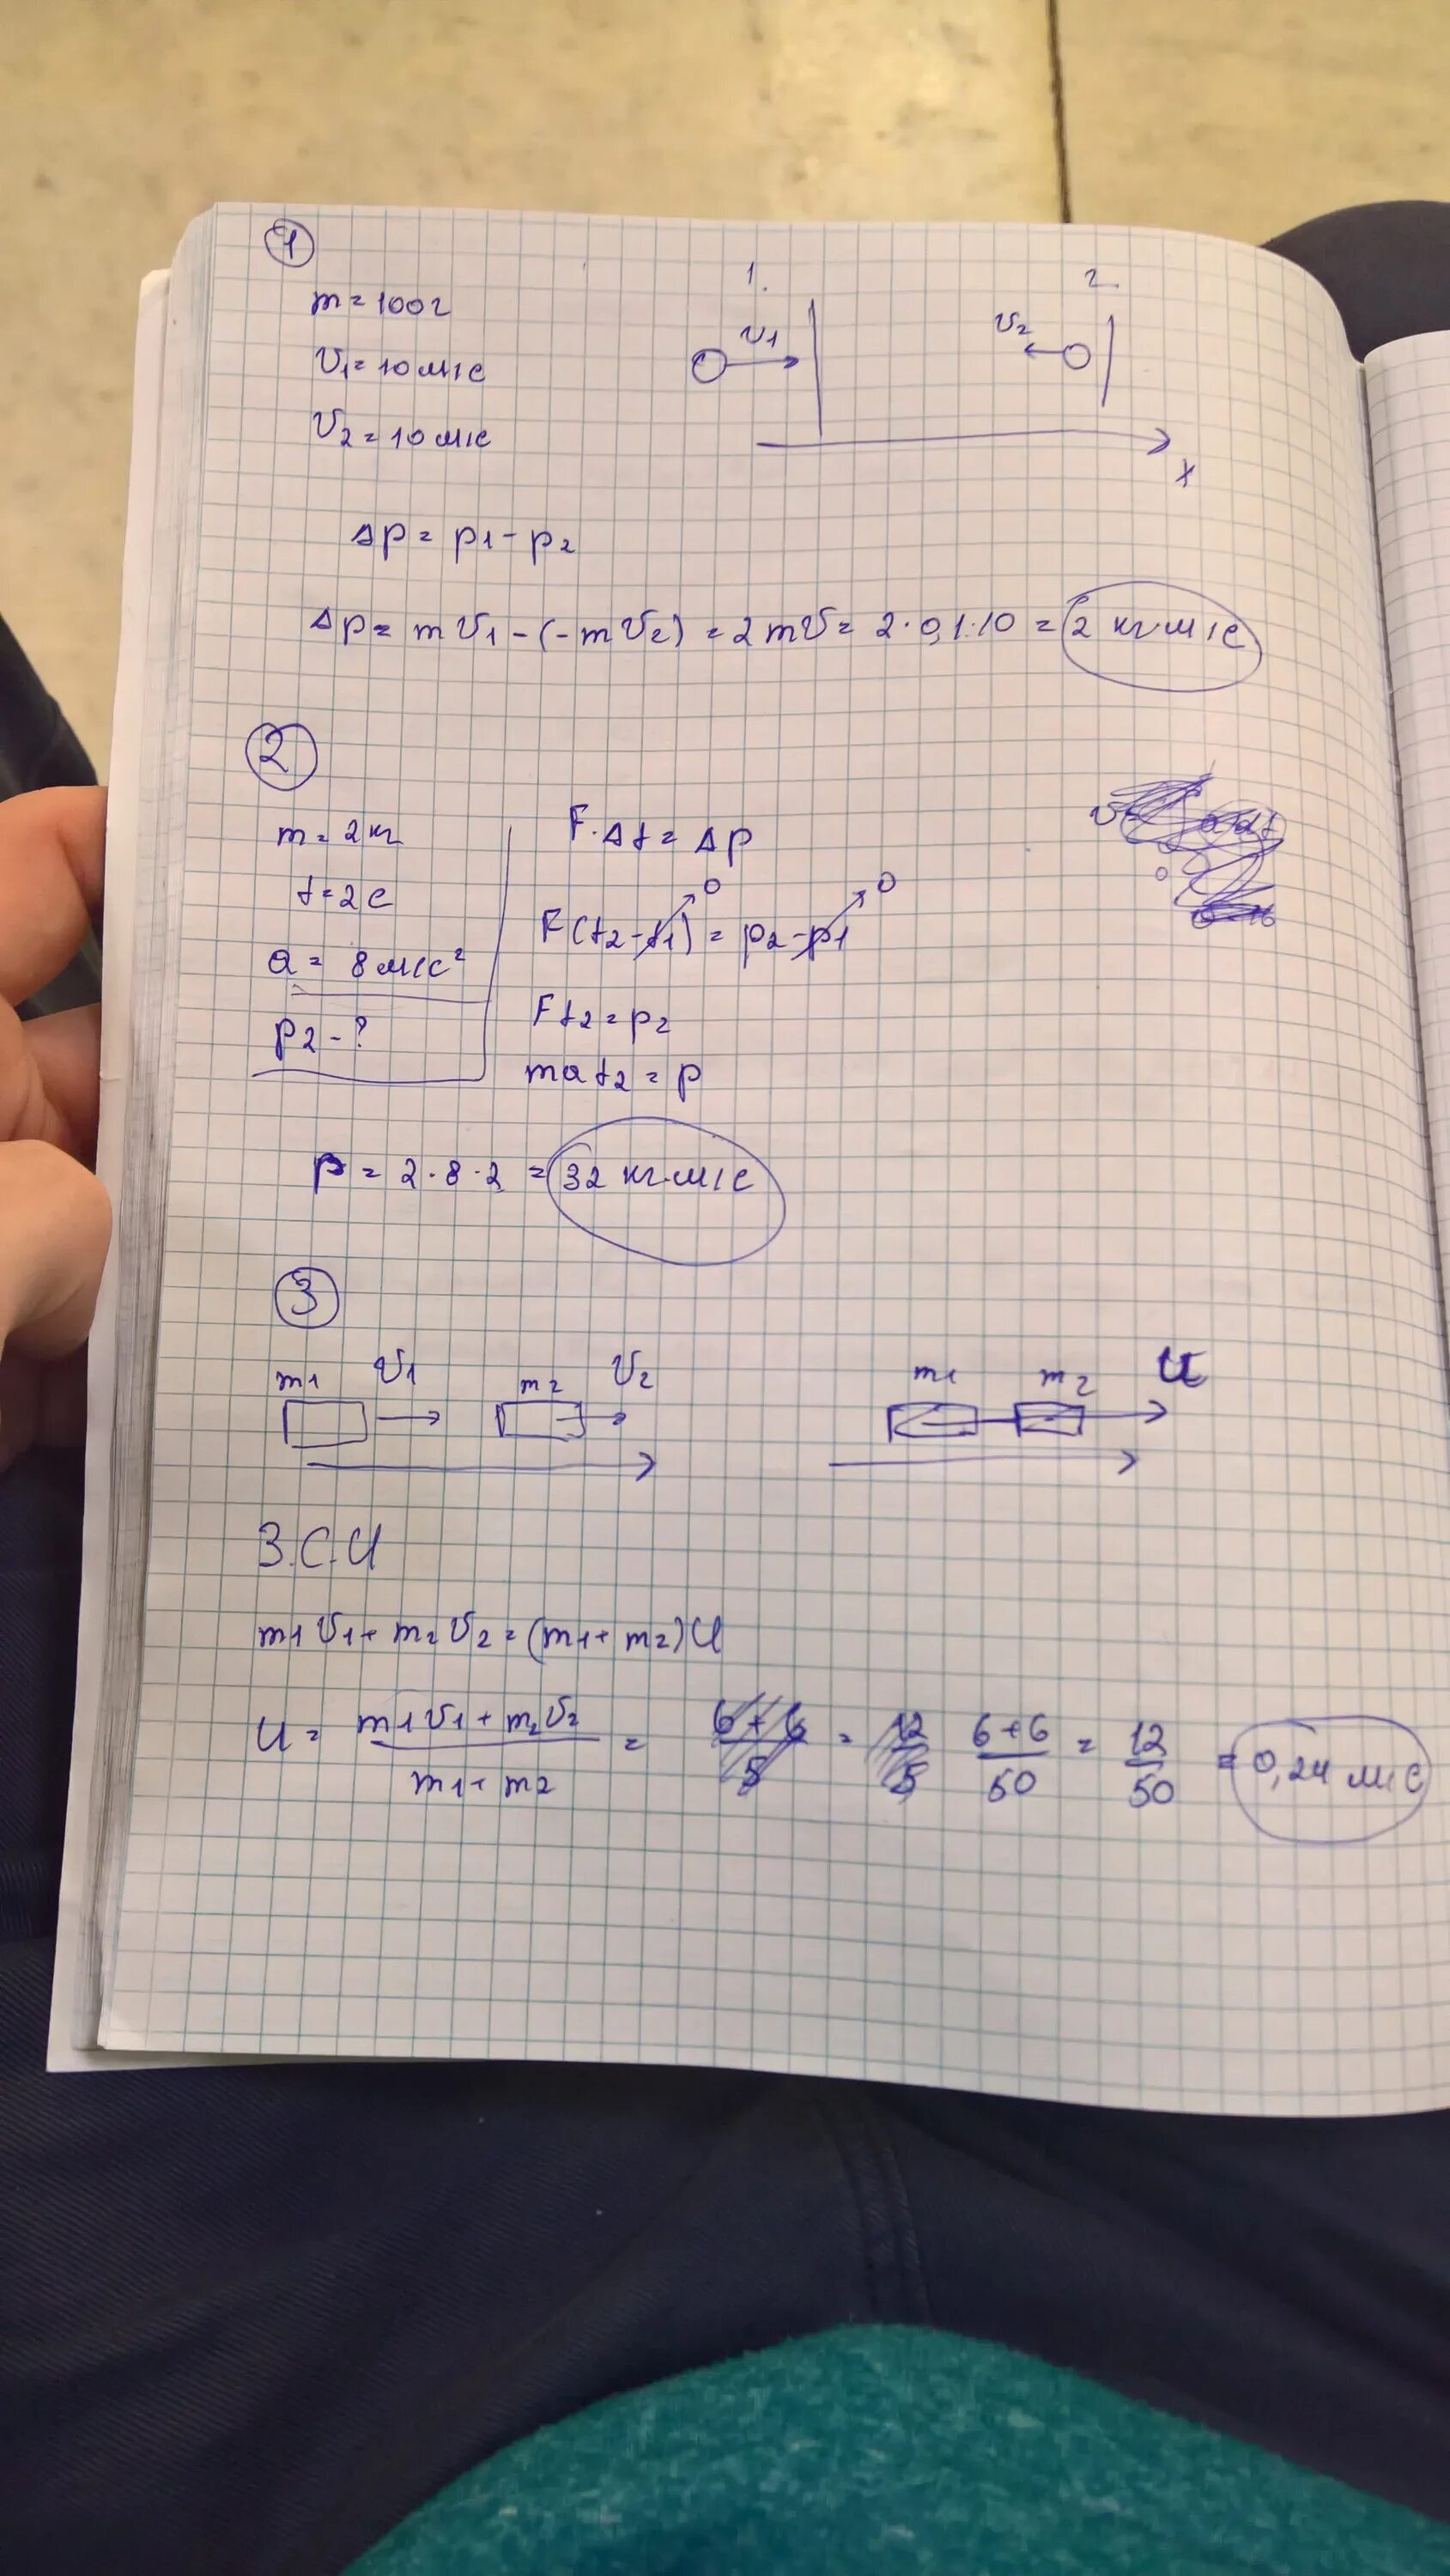 1
m = 100г
V1 = 10 м/с
V2 = 10 м/с
1.
2.
V1
V2
x
Δp = p1 - p2
Δp = mV1 - (-mV2) = 2mV = 2·0,1·10 = 2 кг·м/с
2
m = 2 кг
t = 2 с
a = 8 м/с²
p2 - ?
F·Δt = Δp
0
0
F(t2 - t1) = p2 - p1
Ft2 = p2
mat2 = p
p = 2·8·2 = 32 кг·м/с
3
m1 V1 m2 V2
m1 m2 U
З.С.И
m1V1 + m2V2 = (m1 + m2)U
U = m1V1 + m2V2 / m1 + m2 = 6+6 / 5 = 12 / 5 6+6 / 50 = 12 / 50 = 0,24 м/с